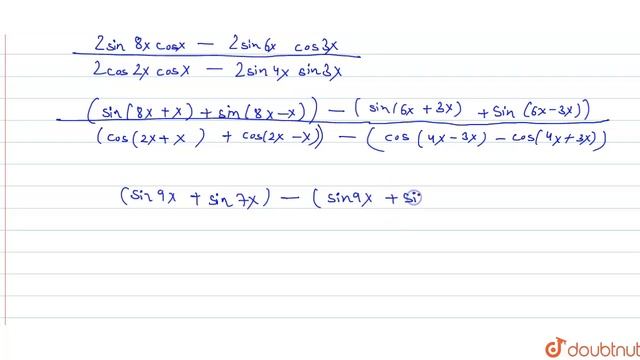 2sin 8x cosx − 2sin6x cos3x
2cos2x cosx − 2sin4x sin3x
(sin(8x+x) + sin(8x−x)) − (sin(6x+3x) + Sin(6x−3x))
(cos(2x+x) + cos(2x−x)) − (cos(4x−3x) − cos(4x+3x))
(sin9x + sin7x) − (sin9x + si
doubtnut